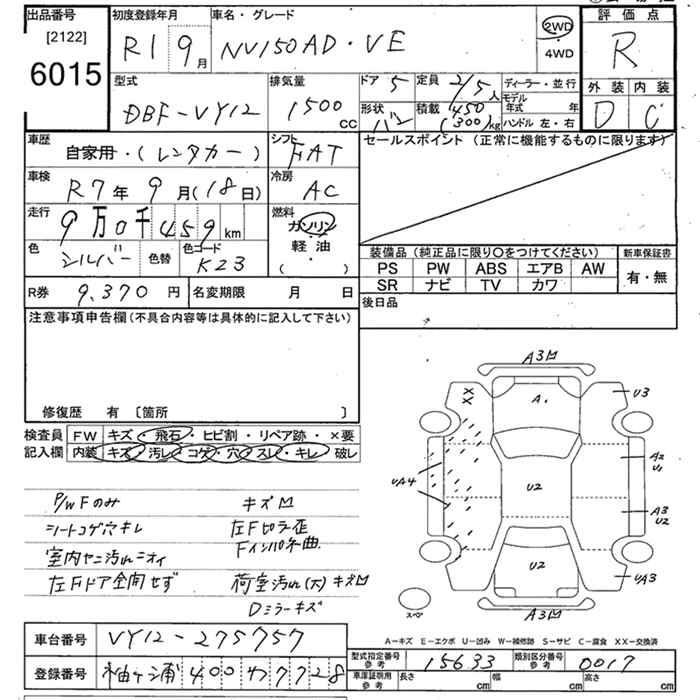 出品番号 [2122] 6015
初度登録年月 R1 9月
車名・グレード NV150AD・VE
2WD ・ 4WD
評価点 R
外装 D 内装 C
型式 DBF-VY12
排気量 1500 CC
ドア 5 定員 2/5人
形状 バン 積載 450 (300)kg
ディーラー・並行
モデル年式 年
ハンドル 左・右
車歴 自家用・(レンタカー)
シフト FAT
セールスポイント (正常に機能するものに限ります)
車検 R7年 9月(18日)
冷房 AC
走行 9万0千459km
燃料 ガソリン・軽油 ( ・ )
色 シルバー 色替 色コード K23
装備品 (純正品に限り○をつけてください) 新車保証書
PS PW ABS エアB AW 有・無
SR ナビ TV カワ
R券 9,370円 名変期限 月 日
後日品
注意事項申告欄(不具合内容等は具体的に記入して下さい)
修復歴 有 〔箇所 〕
検査員記入欄
FW キズ・飛石・ヒビ割・リペア跡・×要
内装 キズ・汚レ・コゲ・穴・スレ・キレ・破レ
P/WFのみ キズ
シートコゲ穴キレ 左F切ラ歪
室内ヤニ汚れニオイ Fインパネ曲
左Fドア全開せず 荷室汚れ(大)キズ
Dミラーキズ
A3
XX A. U3
A2 U1
UA4 U2
A3 U2
U2 UA3
スペア A3
A-キズ E-エクボ U-凹み W-補修跡 S-サビ C-腐食 XX-交換済
車台番号 VY12-275757
登録番号 袖ケ浦 400 ワ 7728
型式指定番号 参考 15633 類別区分番号 参考 0017
車庫証明用 参考 長さ cm 幅 cm 高さ cm